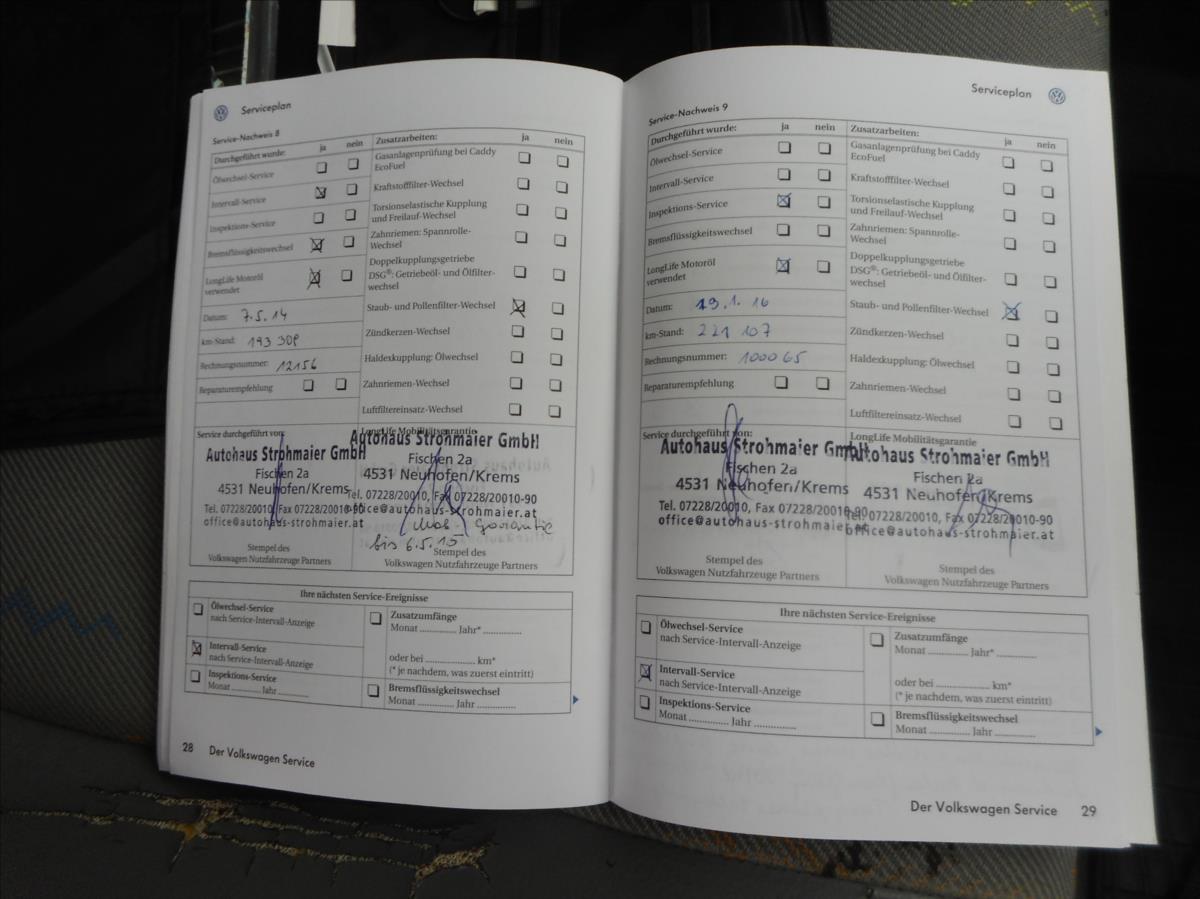 Serviceplan
Service-Nachweis 8
Durchgeführt wurde: ja nein
Ölwechsel-Service
Intervall-Service
Inspektions-Service
Bremsflüssigkeitswechsel
LongLife Motoröl
verwendet
Datum: 7.5.14
km-Stand: 193 309
Rechnungsnummer: 12156
Reparaturempfehlung
Zusatzarbeiten: ja nein
Gasanlagenprüfung bei Caddy
EcoFuel
Kraftstofffilter-Wechsel
Torsionselastische Kupplung
und Freilauf-Wechsel
Zahnriemen: Spannrolle-
Wechsel
Doppelkupplungsgetriebe
DSG®: Getriebeöl- und Ölfilter-
wechsel
Staub- und Pollenfilter-Wechsel
Zündkerzen-Wechsel
Haldexkupplung: Ölwechsel
Zahnriemen-Wechsel
Luftfiltereinsatz-Wechsel
Service durchgeführt von:
Autohaus Strohmaier GmbH
Fischen 2a
4531 Neuhofen/Krems
Tel. 07228/20010, Fax 07228/20010-90
office@autohaus-strohmaier.at
Stempel des
Volkswagen Nutzfahrzeuge Partners
LongLife Mobilitätsgarantie
Autohaus Strohmaier GmbH
Fischen 2a
4531 Neuhofen/Krems
Tel. 07228/20010, Fax 07228/20010-90
office@autohaus-strohmaier.at
Mob - Garantie
bis 6.5.15
Stempel des
Volkswagen Nutzfahrzeuge Partners
Ihre nächsten Service-Ereignisse
Ölwechsel-Service
nach Service-Intervall-Anzeige
Intervall-Service
nach Service-Intervall-Anzeige
Inspektions-Service
Monat ............ Jahr ............
Zusatzumfänge
Monat ............ Jahr* ............
oder bei ................ km*
(* je nachdem, was zuerst eintritt)
Bremsflüssigkeitswechsel
Monat ............ Jahr ............
28 Der Volkswagen Service
Serviceplan
Service-Nachweis 9
Durchgeführt wurde: ja nein
Ölwechsel-Service
Intervall-Service
Inspektions-Service
Bremsflüssigkeitswechsel
LongLife Motoröl
verwendet
Datum: 19.1.16
km-Stand: 221 107
Rechnungsnummer: 100065
Reparaturempfehlung
Zusatzarbeiten: ja nein
Gasanlagenprüfung bei Caddy
EcoFuel
Kraftstofffilter-Wechsel
Torsionselastische Kupplung
und Freilauf-Wechsel
Zahnriemen: Spannrolle-
Wechsel
Doppelkupplungsgetriebe
DSG®: Getriebeöl- und Ölfilter-
wechsel
Staub- und Pollenfilter-Wechsel
Zündkerzen-Wechsel
Haldexkupplung: Ölwechsel
Zahnriemen-Wechsel
Luftfiltereinsatz-Wechsel
Service durchgeführt von:
Autohaus Strohmaier GmbH
Fischen 2a
4531 Neuhofen/Krems
Tel. 07228/20010, Fax 07228/20010-90
office@autohaus-strohmaier.at
Stempel des
Volkswagen Nutzfahrzeuge Partners
LongLife Mobilitätsgarantie
Autohaus Strohmaier GmbH
Fischen 2a
4531 Neuhofen/Krems
Tel. 07228/20010, Fax 07228/20010-90
office@autohaus-strohmaier.at
Stempel des
Volkswagen Nutzfahrzeuge Partners
Ihre nächsten Service-Ereignisse
Ölwechsel-Service
nach Service-Intervall-Anzeige
Intervall-Service
nach Service-Intervall-Anzeige
Inspektions-Service
Monat ............ Jahr ............
Zusatzumfänge
Monat ............ Jahr* ............
oder bei ................ km*
(* je nachdem, was zuerst eintritt)
Bremsflüssigkeitswechsel
Monat ............ Jahr ............
Der Volkswagen Service 29